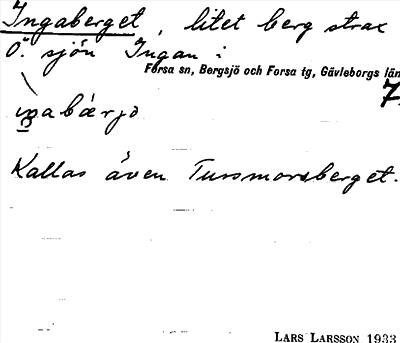 Ingaberget, litet berg strax
Ö. sjön Ingan:
Forsa sn, Bergsjö och Forsa tg, Gävleborgs län
7
Kallas även Tursmorsberget.
LARS LARSSON 1933